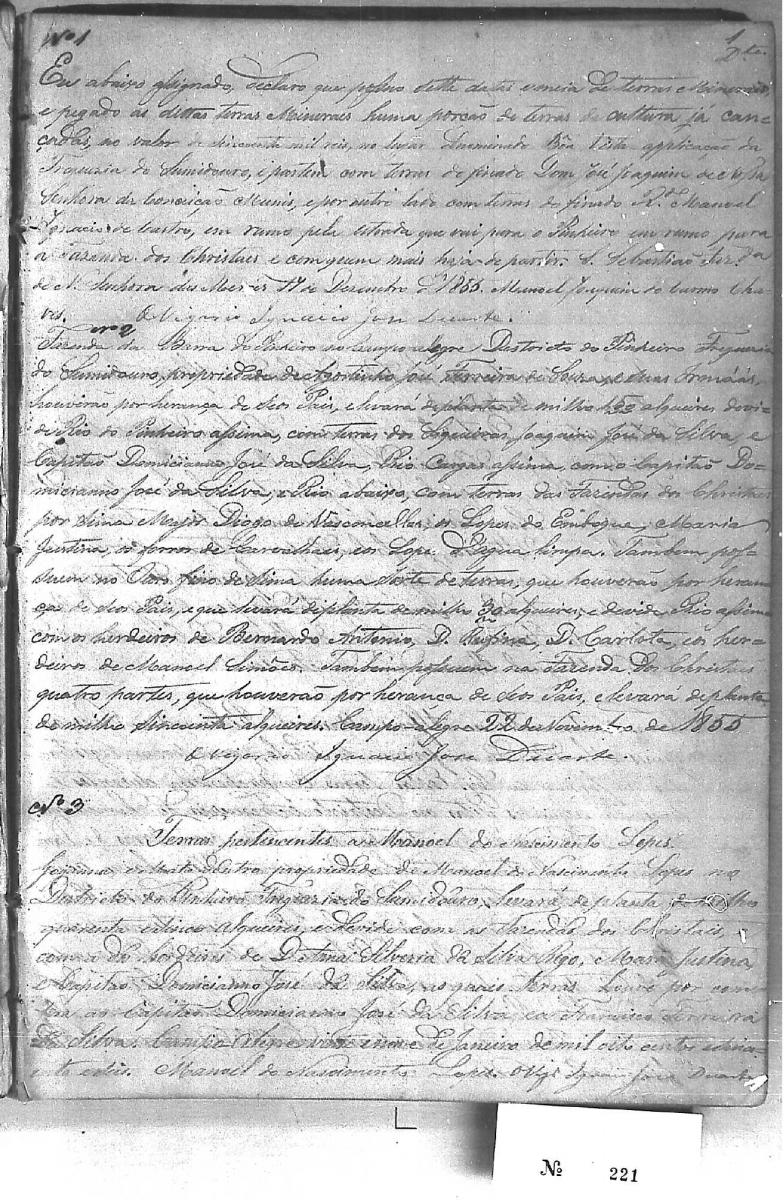 Nº 1
1
Eu abaixo assignado, declaro que possuo desta data sesmaria de terras Mineraes,
e pegado ás dittas terras Mineraes huma porção de terras de cultura já can-
çadas, no valor de sincoenta mil reis, no lugar Denominado Bôa Vista applicação da
Freguezia do Sumidouro, e partem com terras do finado Dom José Joaquim
Senhora da Conceição Muniz, e por outro lado com terras do finado Rdo Manoel
Ignacio de Castro, em rumo pela estrada que vai para o Pinheiro em rumo para
a Fazenda dos Christaes e com quem mais haja de partir. S. Sebastião
de N. Senhora das Mercês 17 de Dezembro de 1855. Manoel Joaquim do Carmo Cha-
ves. O Vigario Ignacio José Duarte.
Nº 2
Fazenda da Barra do Pinheiro no Campo alegre Districto do Pinheiro Freguezia
do Sumidouro, propriedade de Agostinho José Ferreira de Souza, e suas Irmáas,
houverão por herança de seos Pais, e levará de planta de milho 150 alqueires devi-
de Rio do Pinheiro assima, com terras dos Siqueiras, Joaquim José da Silva, e
Capitão Domicianno José da Silva, Rio Cargas assima, com o Capitão Do-
micianno José da Silva, e Rio abaixo, com terras das Fazendas dos Christaes
por sima Major Diogo de Vasconcellos, os Lopes do Emboque, Maria
Justina, os forros de Carvalhaes, e os Lopes d'Agua limpa. Tambem pos-
suem no Oiro fino de sima huma sorte de terras, que houverão por heran-
ça de seos Pais, e que levará de planta de milho 30 alqueires, e devide Rio assima
com os herdeiros de Bernardo Antonio, D. Rufina, D. Carlota, e os her-
deiros de Manoel Simões. Tambem possuem na Fazenda dos Christaes
quatro partes, que houverão por herança de seos Pais, e levará de planta
de milho sincoenta alqueires. Campo alegre 22 de Novembro de 1855
O Vigario Ignacio José Duarte.
Nº 3
Terras pertencentes a Manoel do Nascimento Lopes.
propriedade de Manoel do Nascimento Lopes no
Districto do Pinheiro Freguezia do Sumidouro, levará de planta de milho
quarenta e sinco alqueires, e devide com as Fazendas dos Christaes,
com a do herdeiros de D. Anna Silveria da Silva Rego, Maria Justina,
e Capitão Domicianno José da Silva, as quaes terras houve por com-
pra ao Capitão Domicianno José da Silva, e a Francisco Ferreira
da Silva. Campo Alegre vinte e nove de Janeiro de mil oito centos e sinco-
enta e seis. Manoel do Nascimento Lopes. O Vigº Ignacio José Duarte
Nº 221